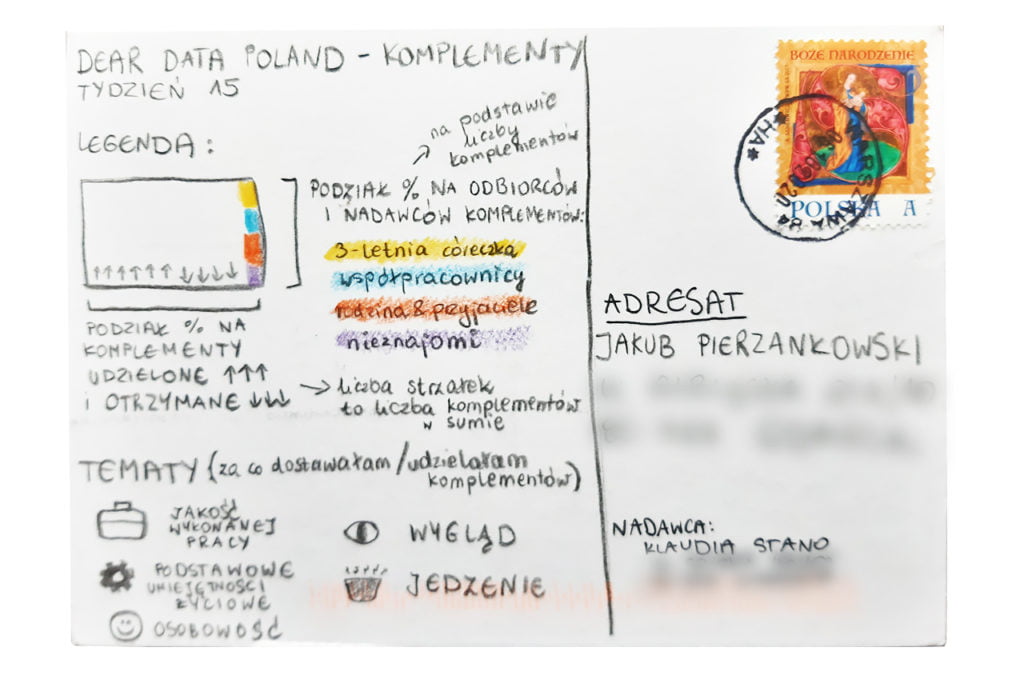 DEAR DATA POLAND - KOMPLEMENTY
TYDZIEŃ 15
LEGENDA:
na podstawie
liczby
komplementów
PODZIAŁ % NA ODBIORCÓW
I NADAWCÓW KOMPLEMENTÓW:
3-letnia córeczka
współpracownicy
rodzina & przyjaciele
nieznajomi
↑↑↑↑↑↑↑ ↓↓↓↓
PODZIAŁ % NA
KOMPLEMENTY
UDZIELONE ↑↑↑
I OTRZYMANE ↓↓↓
→ liczba strzałek
to liczba komplementów
w sumie
TEMATY (za co dostawałam/udzielałam
komplementów)
JAKOŚĆ
WYKONANEJ
PRACY
PODSTAWOWE
UMIEJĘTNOŚCI
ŻYCIOWE
OSOBOWOŚĆ
WYGLĄD
JEDZENIE
BOŻE NARODZENIE
POLSKA A
ADRESAT
JAKUB PIERZANKOWSKI
NADAWCA:
KLAUDIA STANO